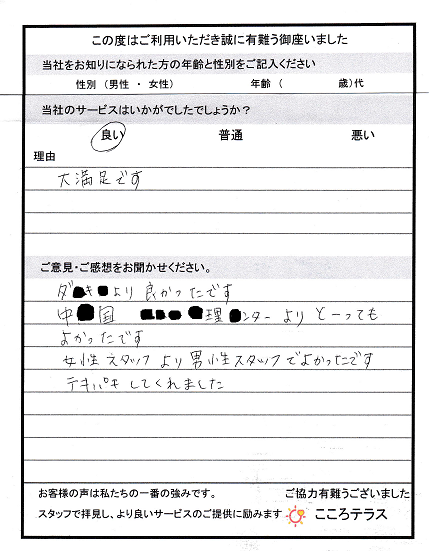 この度はご利用いただき誠に有難う御座いました
当社をお知りになられた方の年齢と性別をご記入ください
性別 (男性 ・ 女性) 年齢 ( 歳)代
当社のサービスはいかがでしたでしょうか?
良い 普通 悪い
理由
大満足です
ご意見・ご感想をお聞かせください。
ダ キ より良かったです
中 国 理 ンターよりとーっても
よかったです
女性スタッフより男性スタッフでよかったです
テキパキしてくれました
お客様の声は私たちの一番の強みです。 ご協力有難うございました
スタッフで拝見し、より良いサービスのご提供に励みます こころテラス